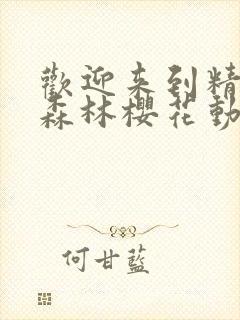 歡迎来到精
森林櫻花動
何甘藍